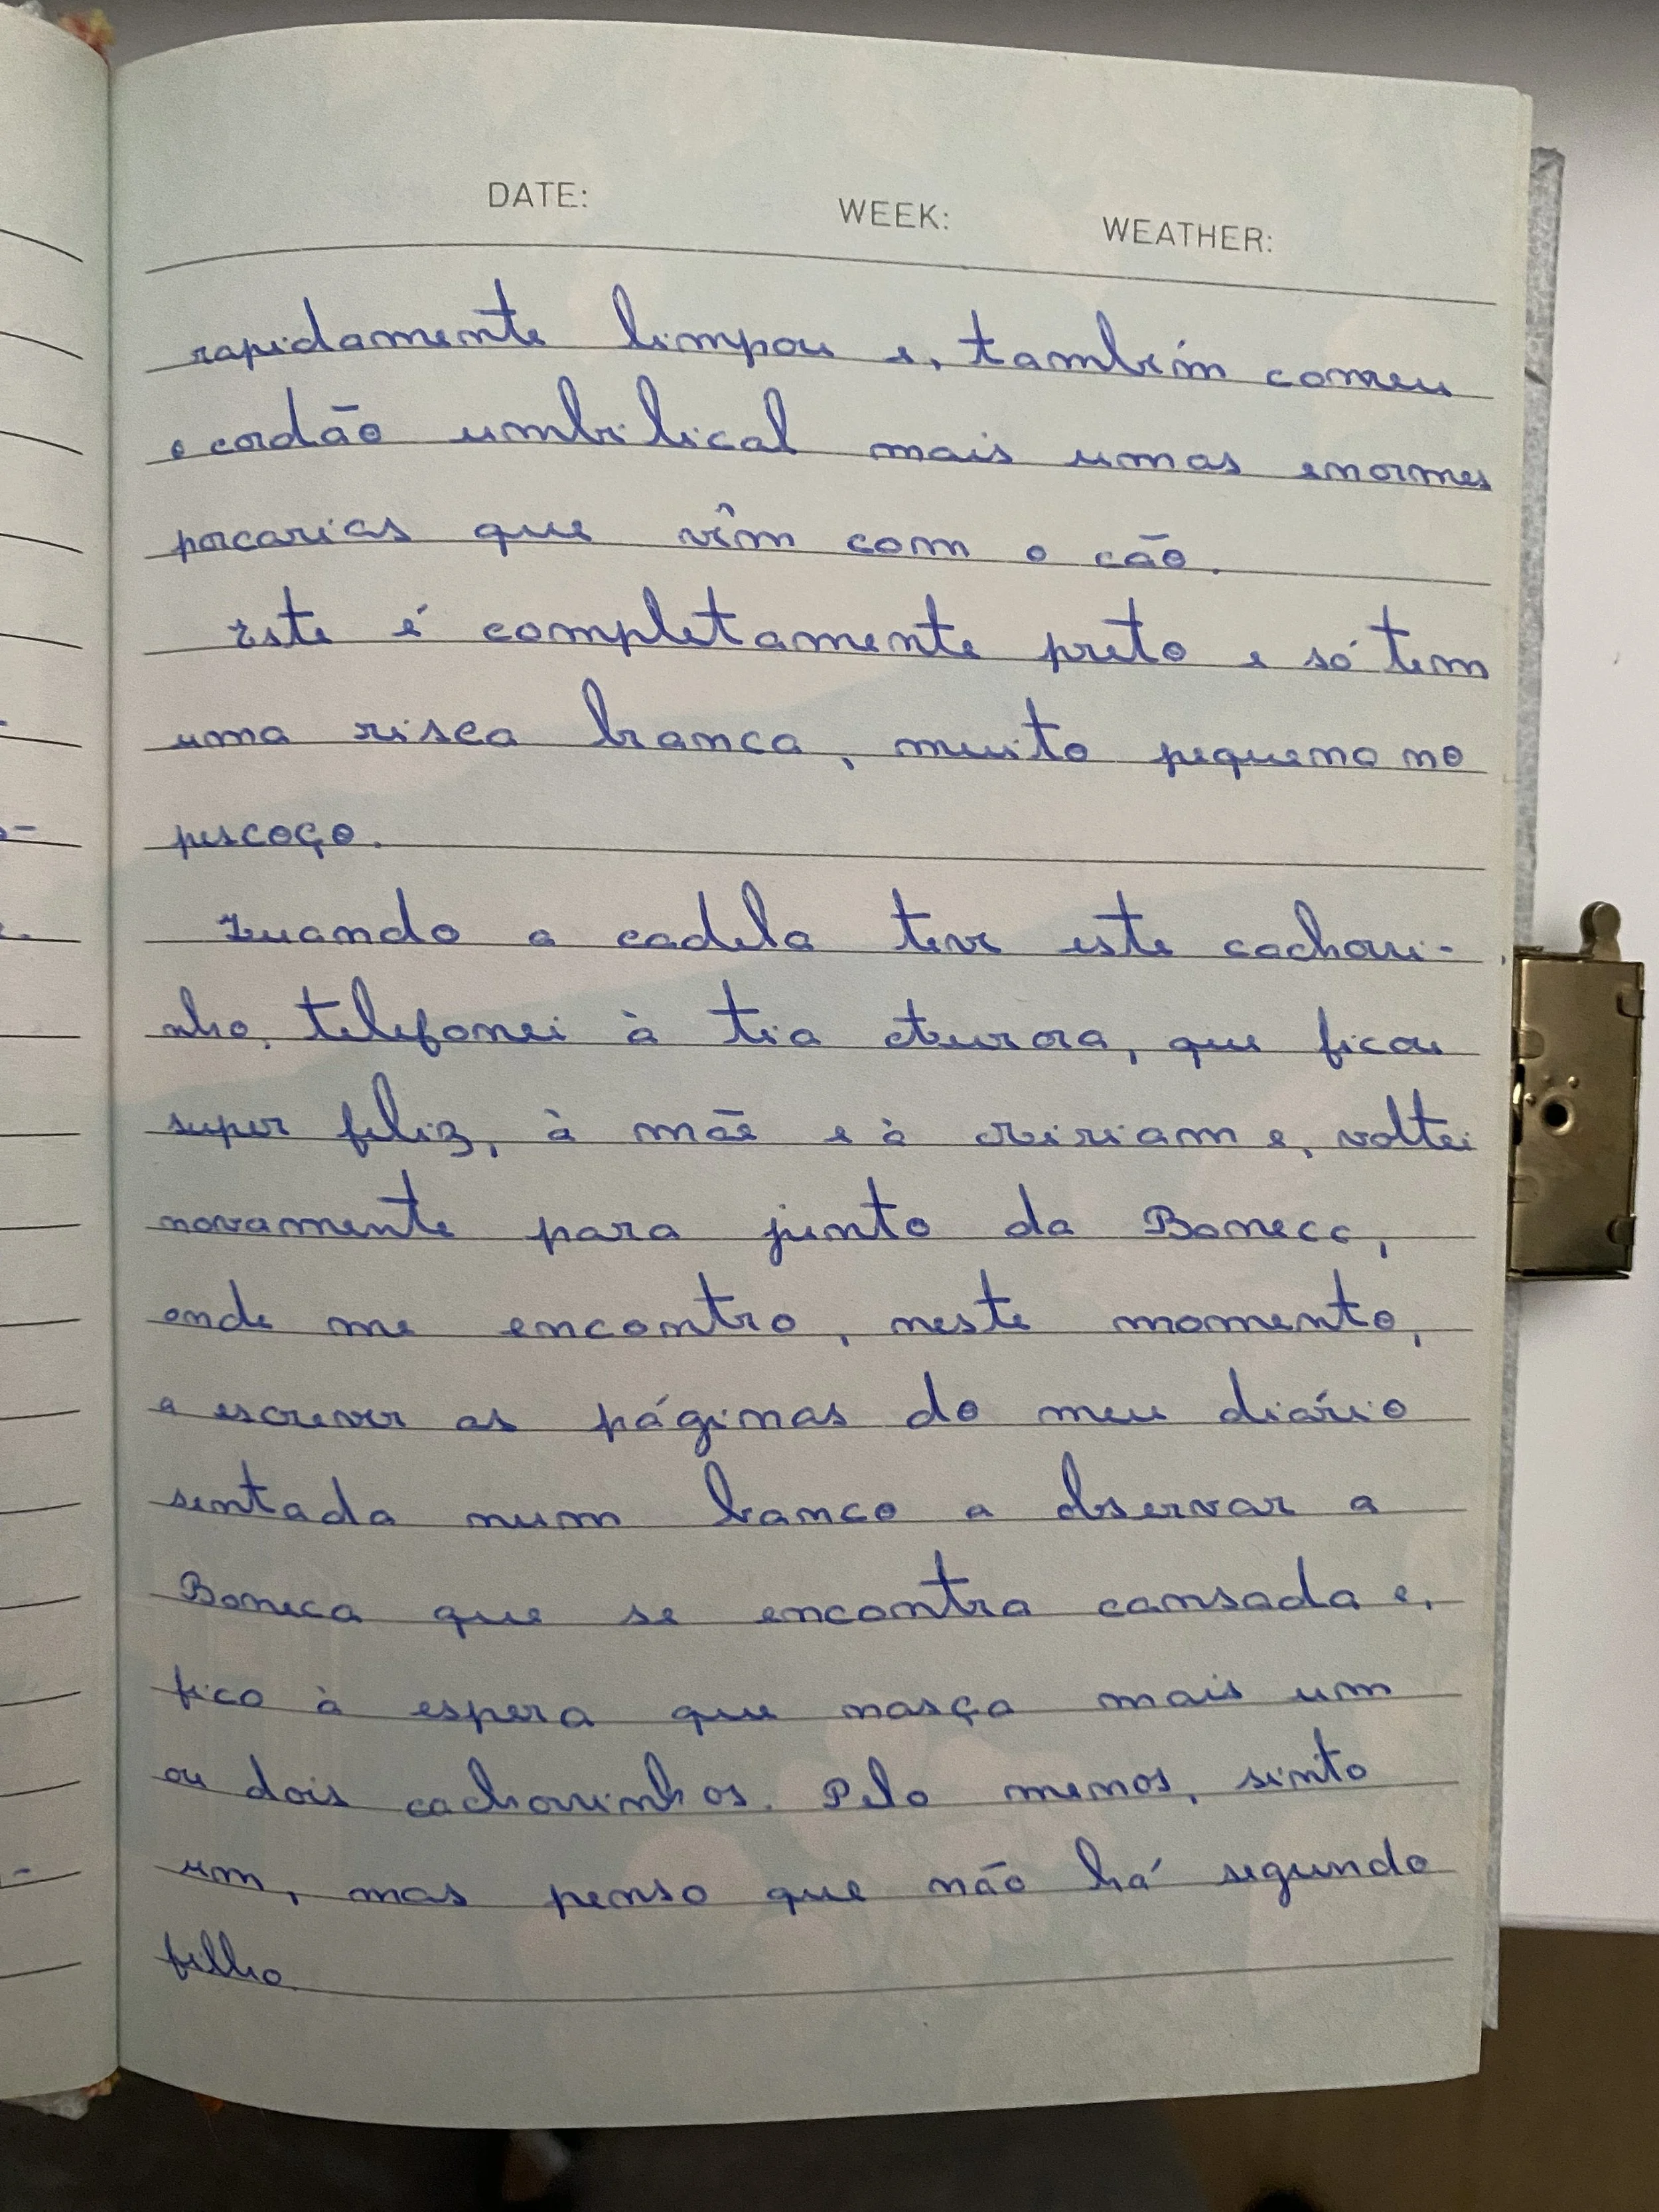 DATE: WEEK: WEATHER:
rapidamente limpou e, também comeu
o cordão umbilical mais umas enormes
porcarias que vêm com o cão.
Este é completamente preto e só tem
uma risca branca, muito pequena no
pescoço.
Quando a cadela teve este cachorri-
nho, telefonei à tia Aurora, que ficou
super feliz, à mãe e à Miriam e, voltei
novamente para junto da Boneca,
onde me encontro, neste momento,
a escrever as páginas do meu diário
sentada num banco a observar a
Boneca que se encontra cansada e,
fico à espera que nasça mais um
ou dois cachorrinhos. Pelo menos, sinto
um, mas penso que não há segundo
filho.